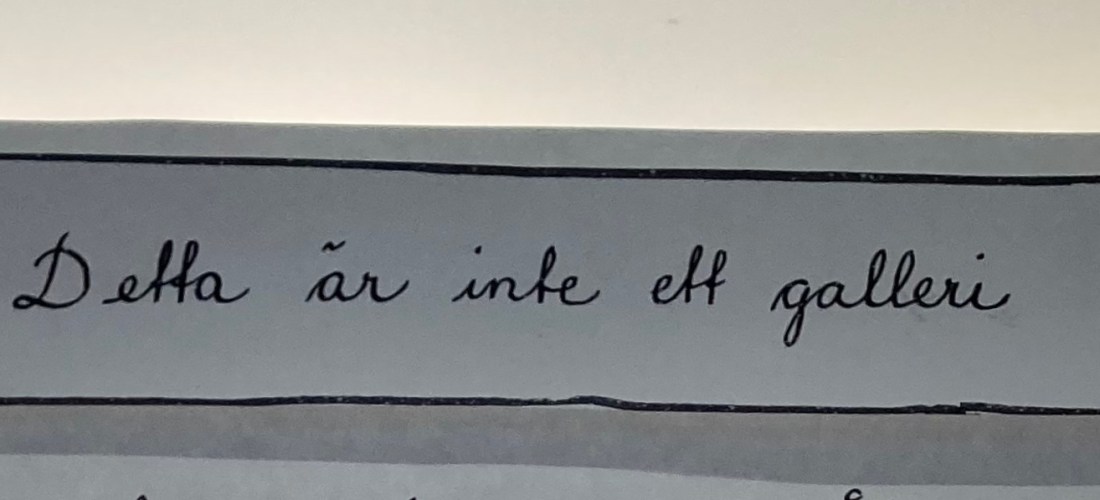 Detta är inte ett galleri